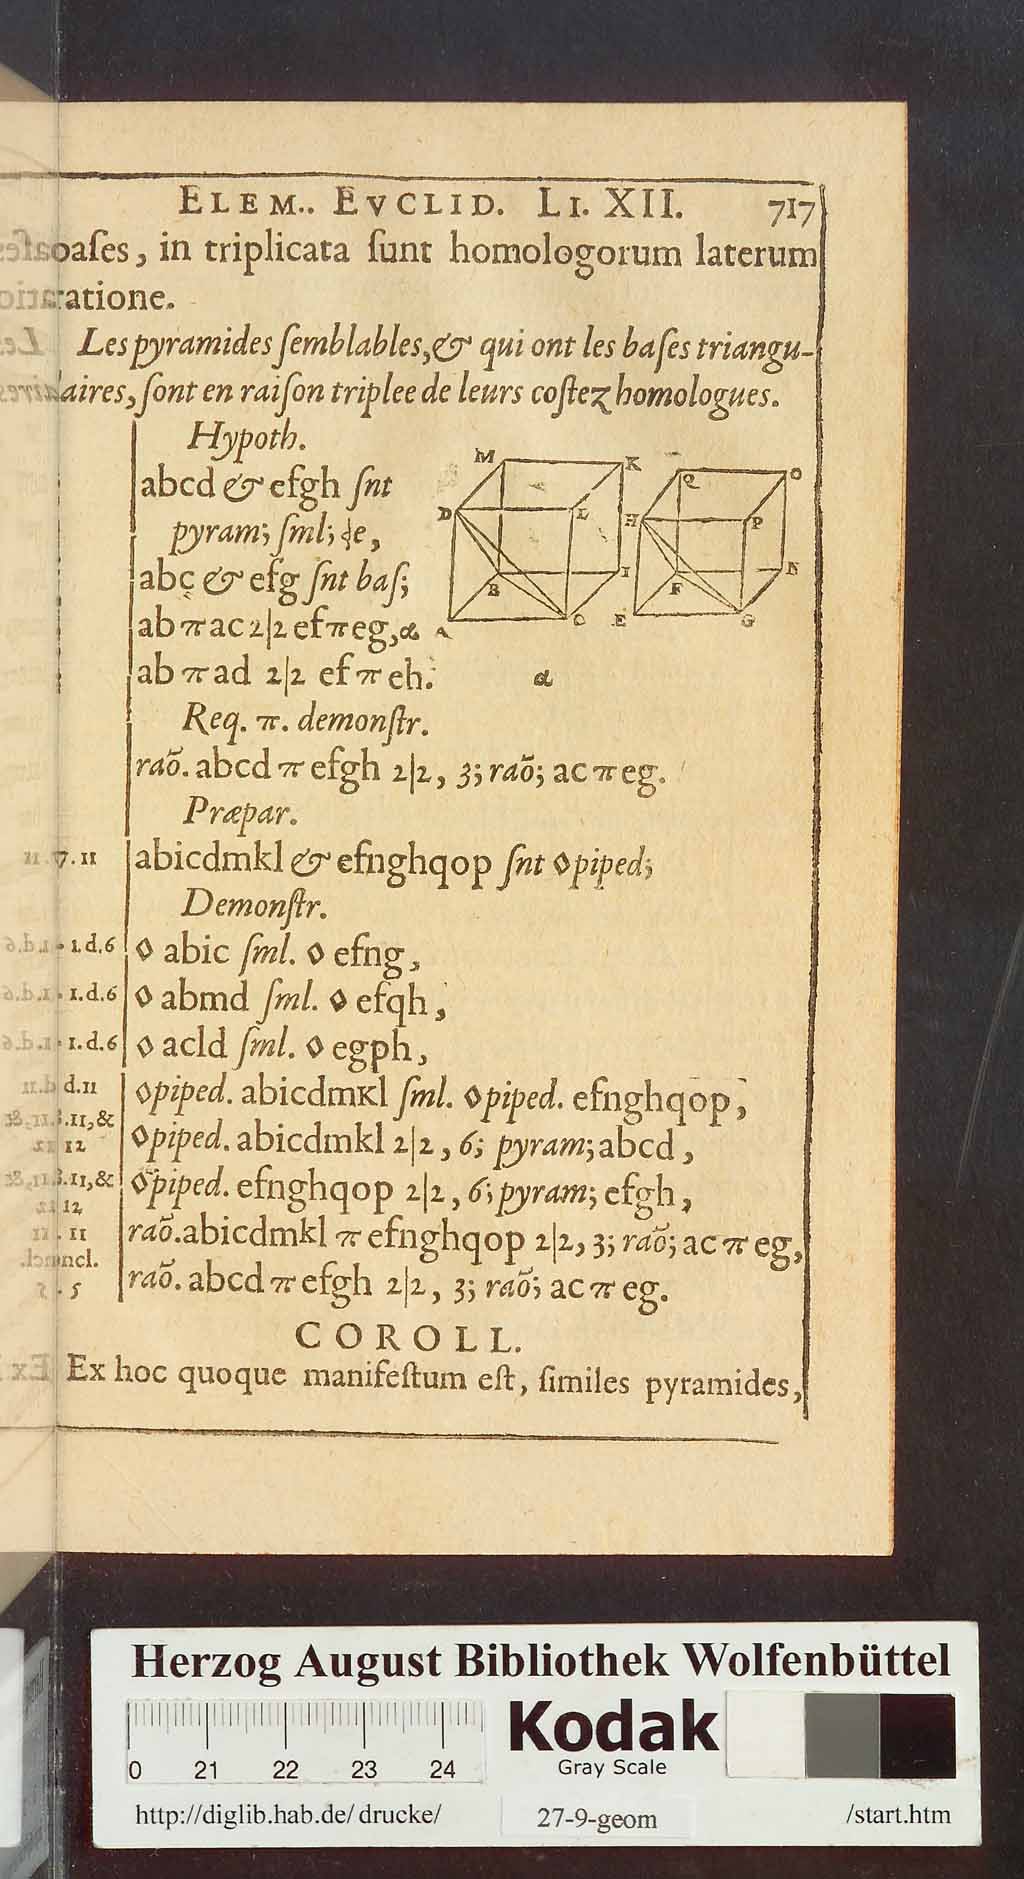 ELEM.. EVCLID. LI. XII. 717
baſes, in triplicata ſunt homologorum laterum
ratione.
Les pyramides ſemblables, & qui ont les baſes triangu-
laires, ſont en raiſon triplee de leurs coſtez homologues.
Hypoth.
abcd & efgh ſnt
pyram; ſml;
abc & efg ſnt baſ;
ab π ac 2|2 ef π eg, &
ab π ad 2|2 ef π eh.
M K Q O
D L H P
B I F N
A C E G
α
Req. π. demonſtr.
raõ. abcd π efgh 2|2, 3; raõ; ac π eg.
Præpar.
7.11 abicdmkl & efnghqop ſnt ◊piped;
Demonſtr.
1.d.6 ◊ abic ſml. ◊ efng,
1.d.6 ◊ abmd ſml. ◊ efqh,
1.d.6 ◊ acld ſml. ◊ egph,
d.11 ◊piped. abicdmKl ſml. ◊piped. efnghqop,
.11, &
12 ◊piped. abicdmkl 2|2, 6; pyram; abcd,
.11, &
12 ◊piped. efnghqop 2|2, 6; pyram; efgh,
11 raõ. abicdmkl π efnghqop 2|2, 3; raõ; ac π eg,
ncl.
5 raõ. abcd π efgh 2|2, 3; raõ; ac π eg.
COROLL.
Ex hoc quoque manifeſtum eſt, ſimiles pyramides,
Herzog August Bibliothek Wolfenbüttel
0 21 22 23 24
Kodak
Gray Scale
http://diglib.hab.de/ drucke/ 27-9-geom /start.htm